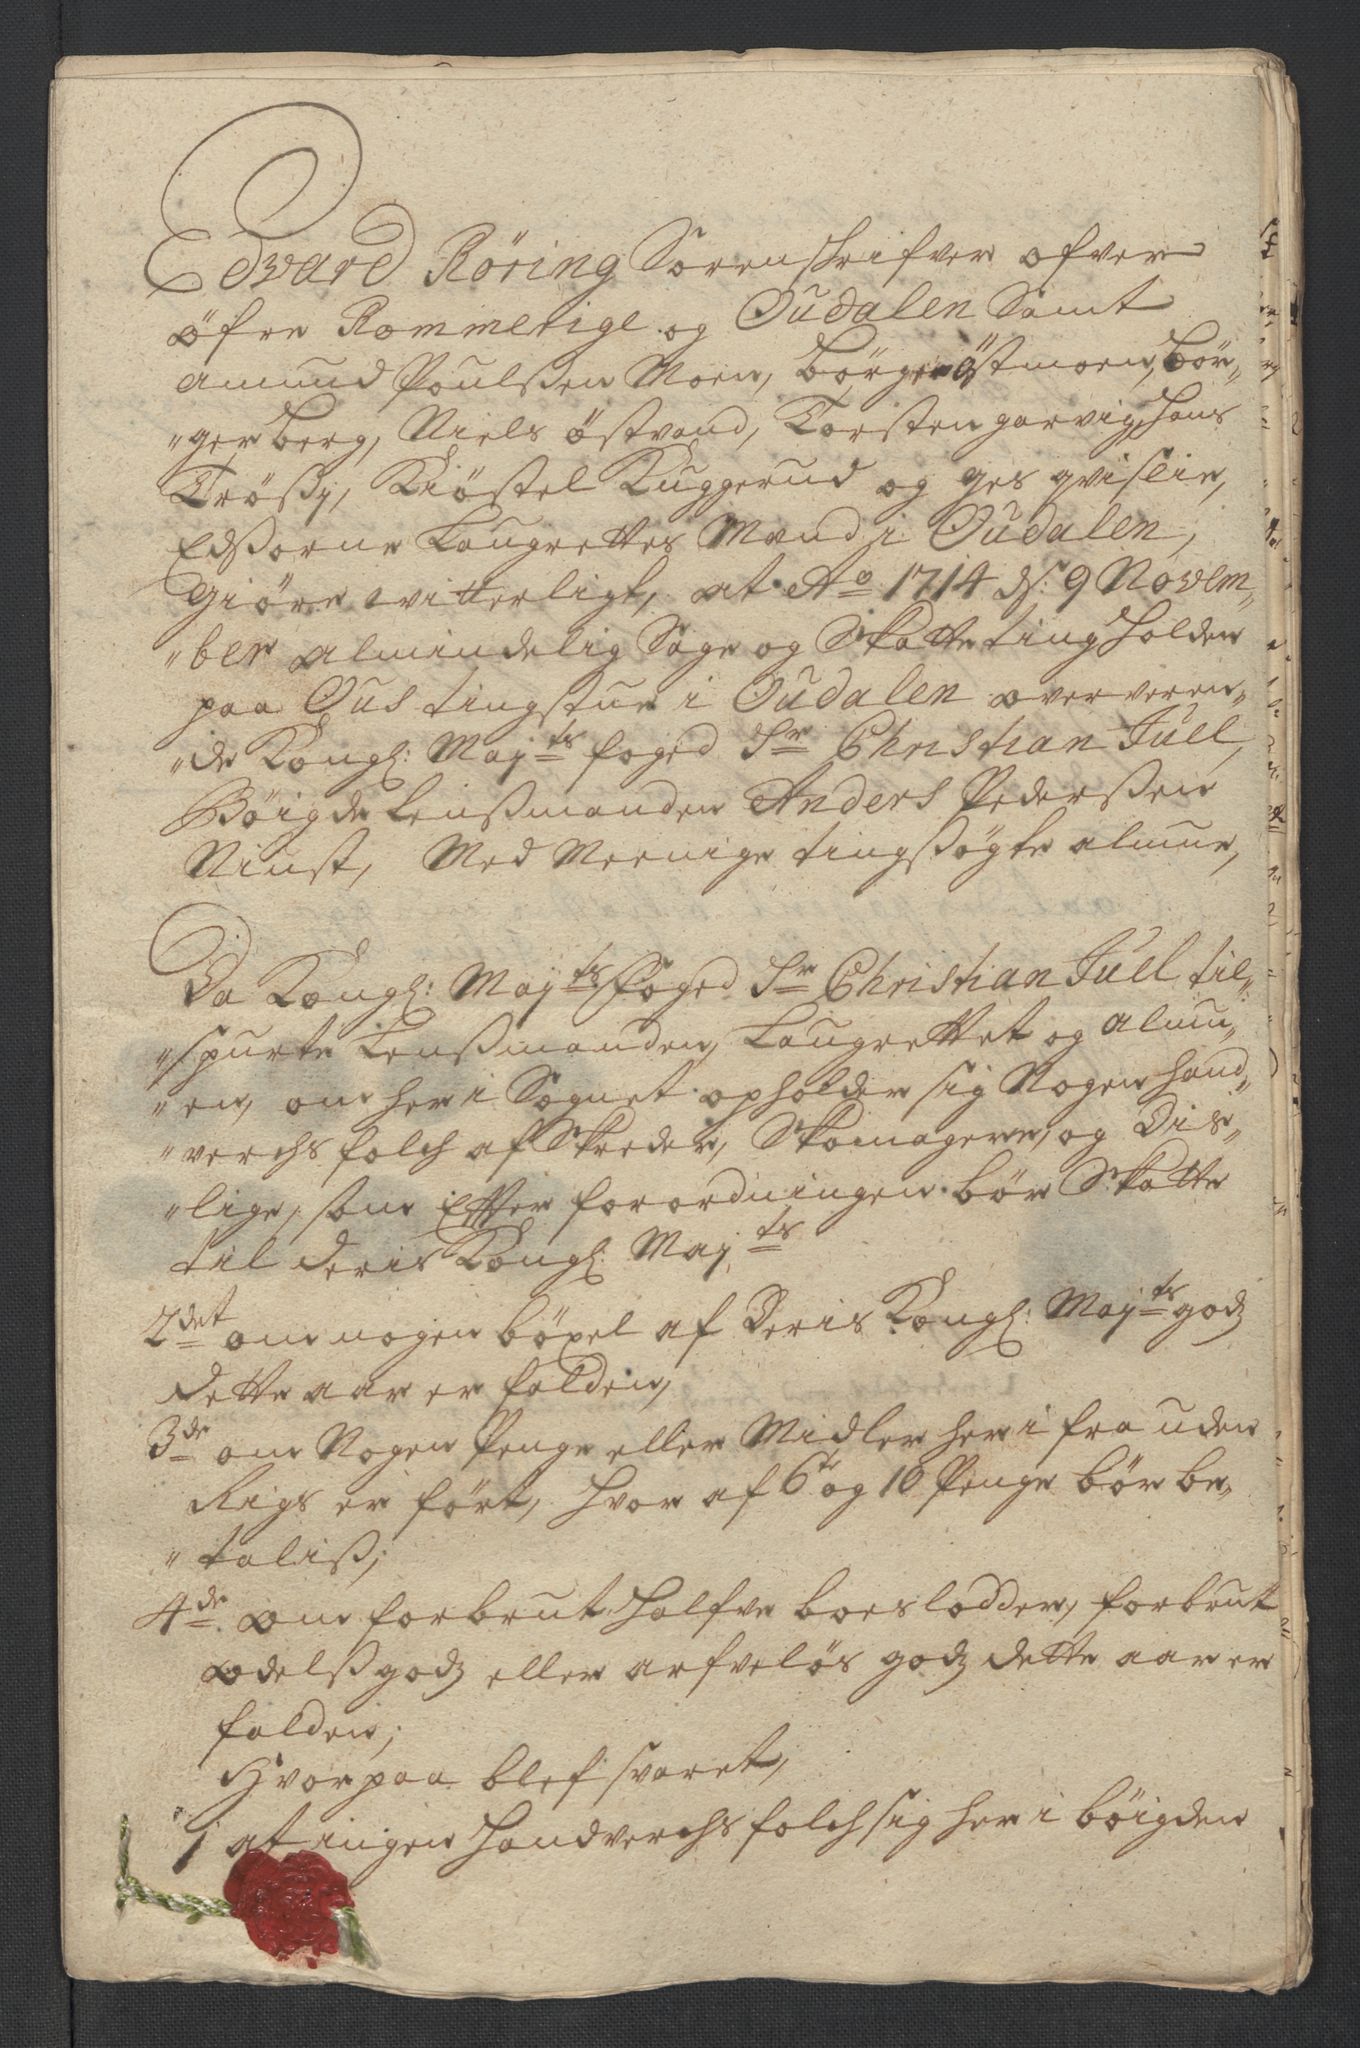 Edvard Röring Sorenschrifver ofver
öfre Rommerige og Oudalen Samt
Amund Poulßen Moen, Börger Östmoen, Bör„
„ger Berg, Niels Östvand, Torsten garvig, Hans
Trößj, Kiöstel Kuggerud og
Edßorne Laugrettes Mænd i Oudalen,
Giöre vitterligt, at Ao 1714 d: 9 Novem„
„ber almindelig Sage og Skatteting Holden
paa Ous tingstue i Oudalen oververen„
„de Kongl: Majts foged Sr Christian Juel,
Böigde Lensßmanden Anders Pederßen
Ninst, Med Meenige tingßögte almue,
Da Kongl: Majts Foged Sr Christian Juel til„
„spurte Lensßmanden, Laugrettet og almu„
„en, om her i Sognet opholder sig Nogen hand„
„verchs folch af Skreder, Skomagere, og Dis„
„lige, som Efter forordningen bör Skatte
til deris Kongl: Majts
2det om nogen böxel af Deris Kongl: Majts godz
dette aar er falden,
3de om Nogen Penge eller Midler her i fra uden
Rigs er fört, Hvor af 6te og 10 Penge bör be„
„taliß;
4de om forbrut Halfve boeslodder, forbrut
odelßgodz eller arfvelös godz dette aar er
falden;
Hvorpaa blef svaret,
1 at ingen Handverchsfolch sig her i böigden